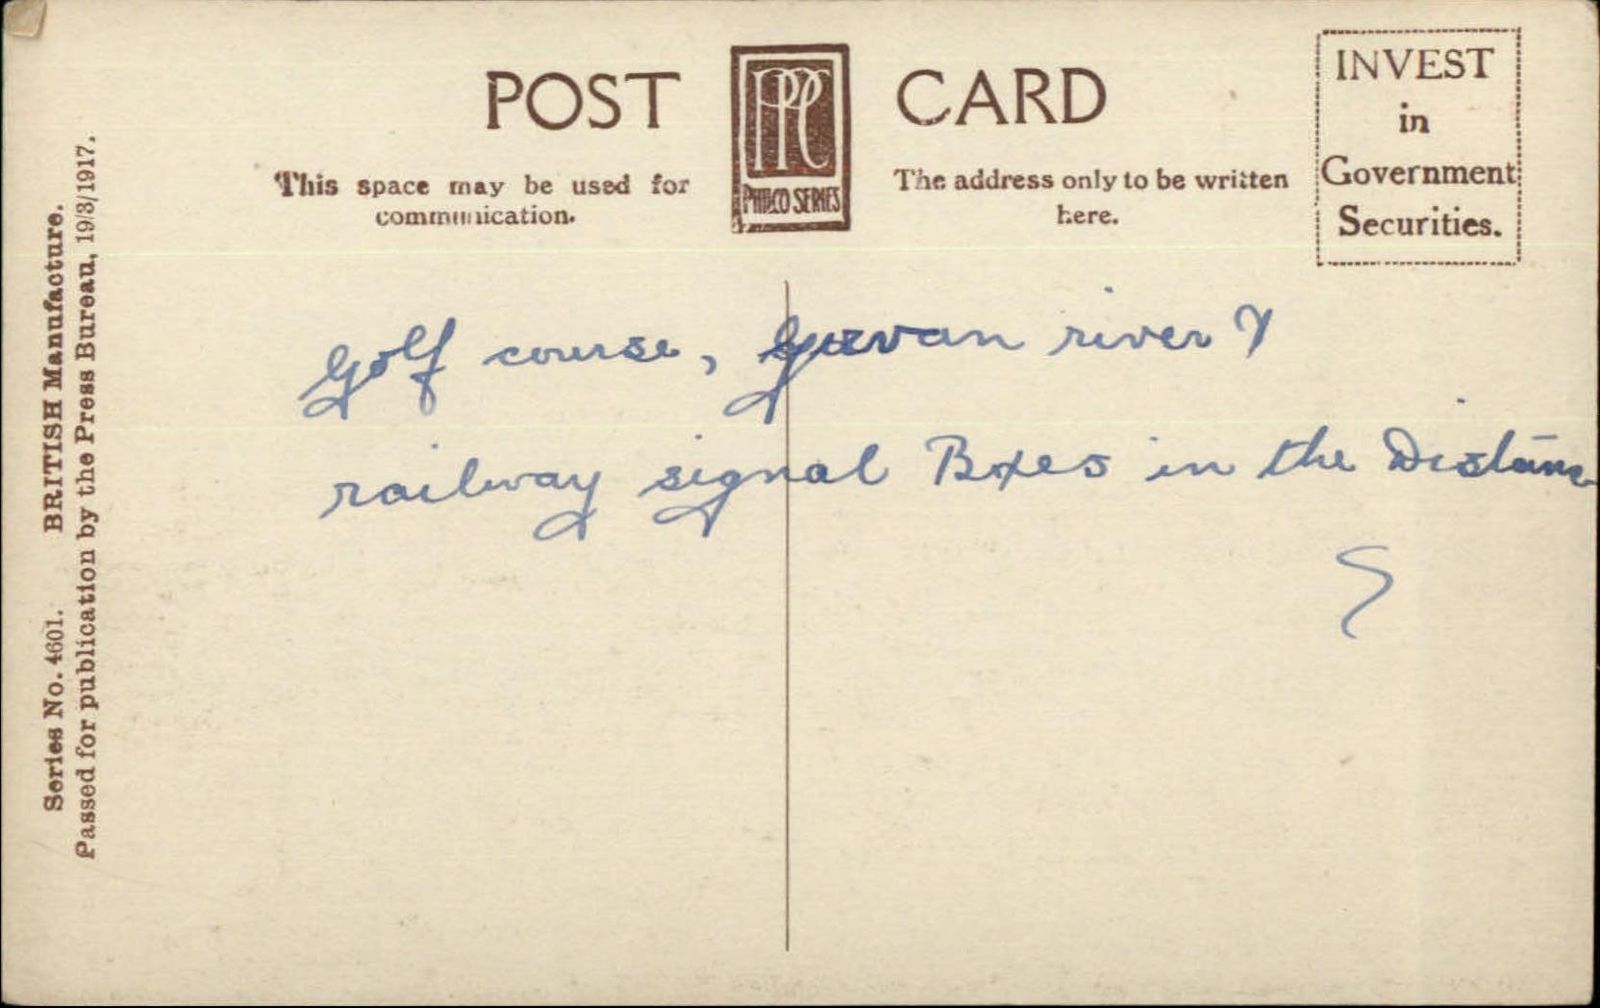 POST CARD
PPC
PHILCO SERIES
This space may be used for
communication.
The address only to be written
here.
INVEST
in
Government
Securities.
Series No. 4601. BRITISH Manufacture.
Passed for publication by the Press Bureau, 19/3/1917.
Golf course, river &
railway signal Boxes in the